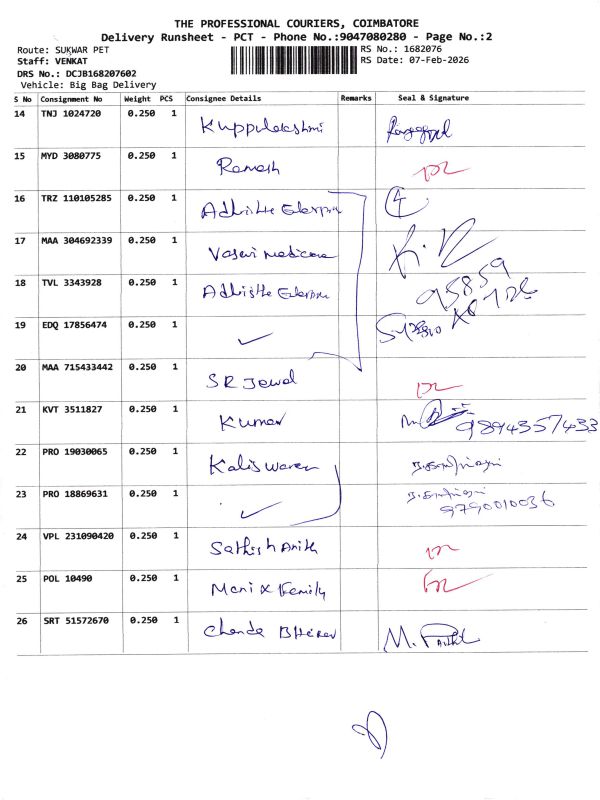 THE PROFESSIONAL COURIERS, COIMBATORE
Delivery Runsheet - PCT - Phone No.:9047080280 - Page No.:2
Route: SUKWAR PET
Staff: VENKAT
DRS No.: DCJB168207602
Vehicle: Big Bag Delivery
RS No.: 1682076
RS Date: 07-Feb-2026
S No Consignment No Weight PCS Consignee Details Remarks Seal & Signature
14 TNJ 1024720 0.250 1 Kuppulakshmi
15 MYD 3080775 0.250 1 Ramesh
16 TRZ 110105285 0.250 1 Adhiste 4
17 MAA 304692339 0.250 1 Vasavi medicare
18 TVL 3343928 0.250 1 Adhiste 95859
19 EDQ 17856474 0.250 1 ✓
20 MAA 715433442 0.250 1 SR Jewel
21 KVT 3511827 0.250 1 Kumar 9894357433
22 PRO 19030065 0.250 1 Kaliswaren
23 PRO 18869631 0.250 1 ✓ 9790010036
24 VPL 231090420 0.250 1 Sathish
25 POL 10490 0.250 1 Mani x Family
26 SRT 51572670 0.250 1 Chanda Bherav M.